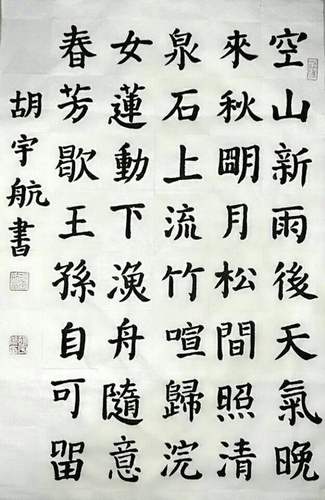 空山新雨後天氣晚
來秋明月松間照清
泉石上流竹喧歸浣
女蓮動下漁舟隨意
春芳歇王孫自可留
胡宇航書